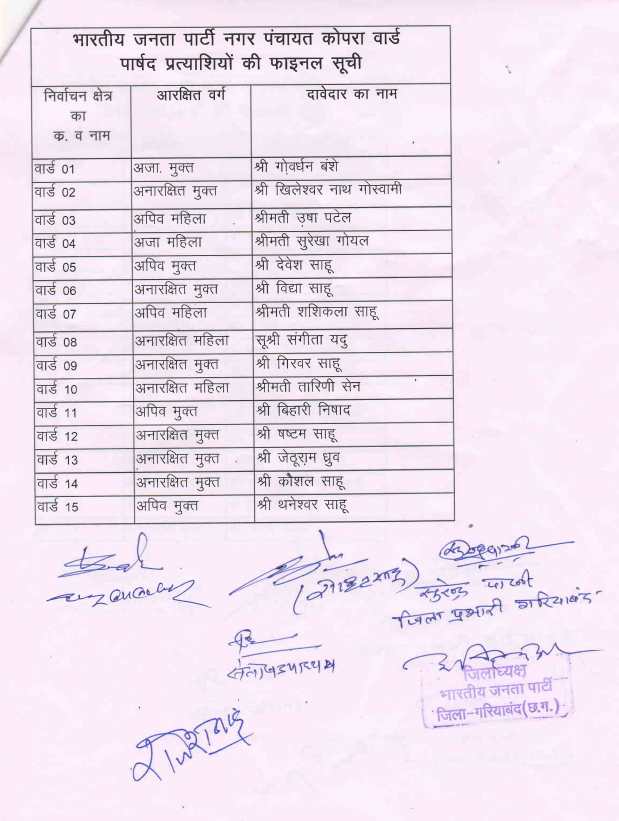 भारतीय जनता पार्टी नगर पंचायत कोपरा वार्ड
पार्षद प्रत्याशियों की फाइनल सूची
निर्वाचन क्षेत्र का क. व नाम आरक्षित वर्ग दावेदार का नाम
वार्ड 01 अजा. मुक्त श्री गोवर्धन बंशे
वार्ड 02 अनारक्षित मुक्त श्री खिलेश्वर नाथ गोस्वामी
वार्ड 03 अपिव महिला श्रीमती उषा पटेल
वार्ड 04 अजा महिला श्रीमती सुरेखा गोयल
वार्ड 05 अपिव मुक्त श्री देवेश साहू
वार्ड 06 अनारक्षित मुक्त श्री विद्या साहू
वार्ड 07 अपिव महिला श्रीमती शशिकला साहू
वार्ड 08 अनारक्षित महिला सूश्री संगीता यदु
वार्ड 09 अनारक्षित मुक्त श्री गिरवर साहू
वार्ड 10 अनारक्षित महिला श्रीमती तारिणी सेन
वार्ड 11 अपिव मुक्त श्री बिहारी निषाद
वार्ड 12 अनारक्षित मुक्त श्री षष्टम साहू
वार्ड 13 अनारक्षित मुक्त श्री जेठूराम ध्रुव
वार्ड 14 अनारक्षित मुक्त श्री कौशल साहू
वार्ड 15 अपिव मुक्त श्री थनेश्वर साहू
सुरेन्द्र पाटनी
जिला प्रभारी गरियाबंद
जिलाध्यक्ष
भारतीय जनता पार्टी
जिला-गरियाबंद(छ.ग.)